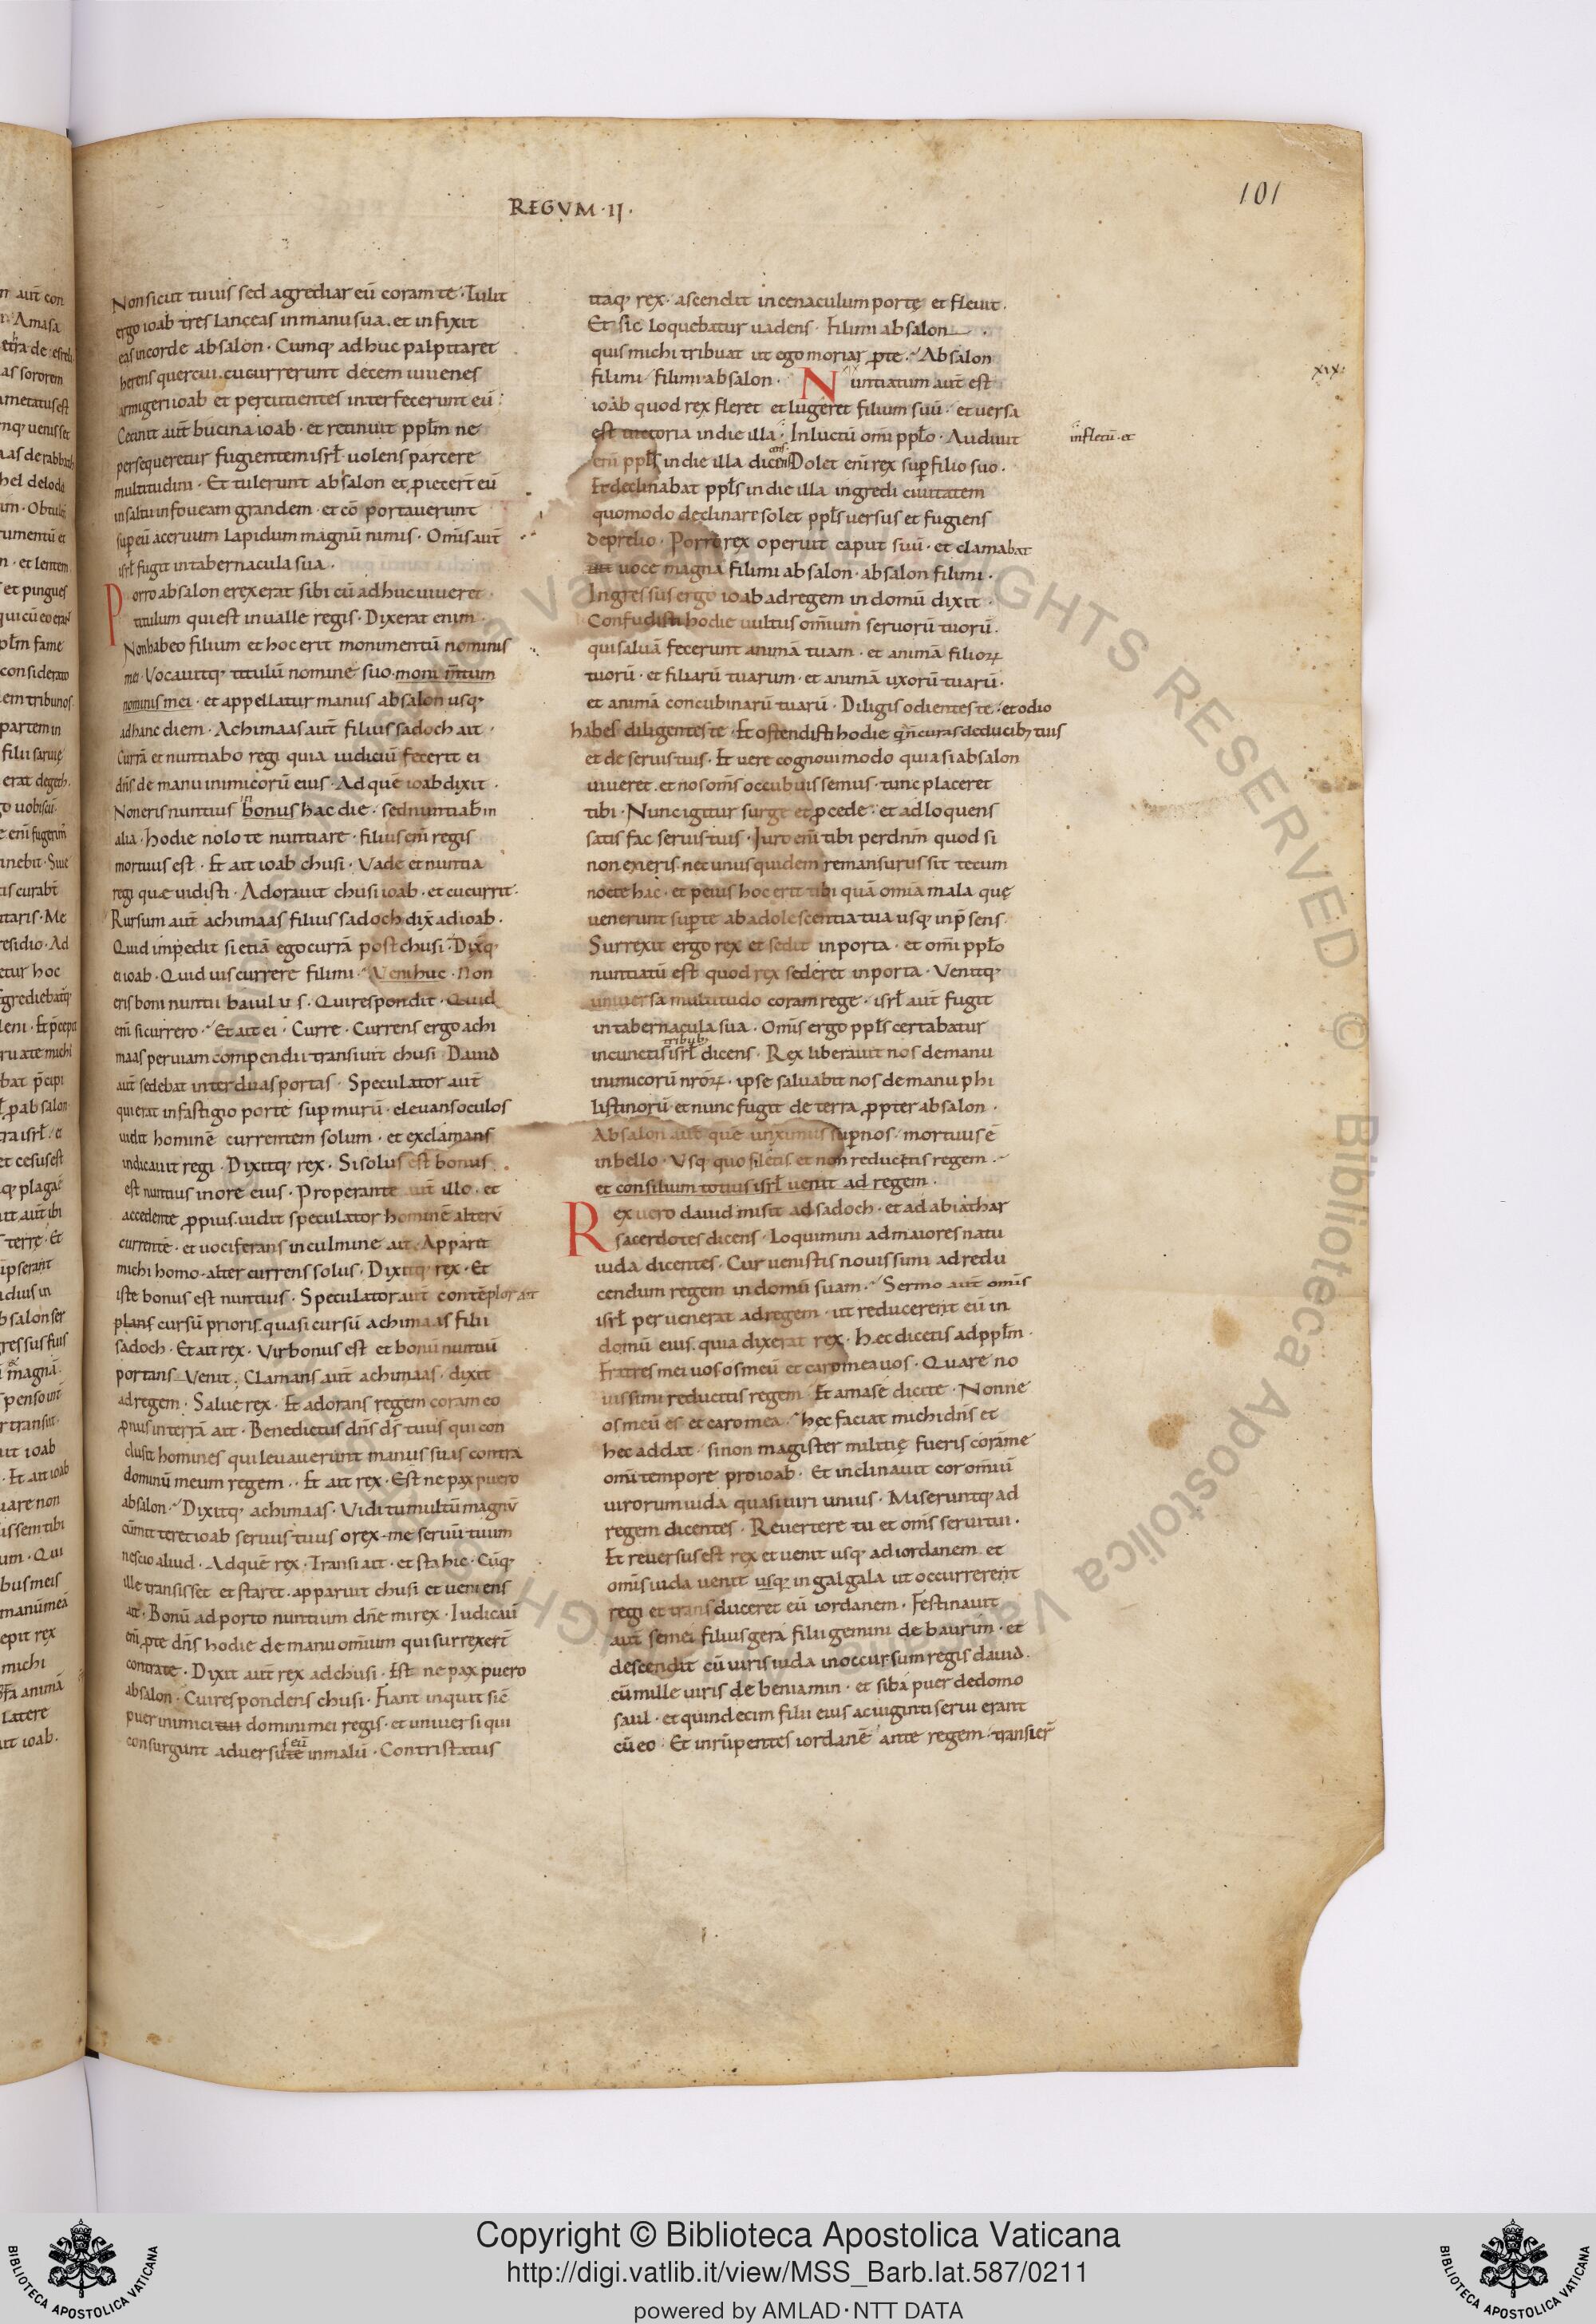 REGVM · II ·
101
Non sicut tu uis sed agrediar eū coram te · Tulit
ergo ioab tres lanceas in manu sua . et infixit
eas in corde absalon · Cumq; adhuc palpitaret
herens quercui . cucurrerunt decem iuuenes
armigeri ioab et percutientes interfecerunt eū :
Cecinit aut̄ bucina ioab · et retinuit ppl̄m ne
persequeretur fugientem isrł uolens parcere
multitudini · Et tulerunt absalon et piecer̄t eū
in saltu in foueam grandem · et cō portauerunt
sup eū aceruum lapidum magnū nimis · Om̄is aut̄
isrł fugit in tabernacula sua .
Porro absalon erexerat sibi cū adhuc uiueret ·
titulum qui est in ualle regis · Dixerat enim ·
Non habeo filium et hoc erit monimentū nominis
mei · Vocauitq; titulū nomine suo . moni m̄tum
nominis mei · et appellatur manus absalon usq;
ad hanc diem · Achimaas aut̄ filius sadoch ait ·
Currā et nuntiabo regi quia iudiciū fecerit ei
dn̄s de manu inimicorū eius · Ad quē ioab dixit ·
Non eris nuntius bonus hac die · sed nuntiab̄ in
alia · hodie nolo te nuntiare · filius en̄i regis
mortuus est · Et ait ioab chusi · Vade et nuntia
regi quę uidisti · Adorauit chusi ioab · et cucurrit ·
Rursum aut̄ achimaas filius sadoch dix̄ ad ioab ·
Quid impedit si etiā ego currā post chusi · Dix̄q;
ei ioab · Quid uis currere fili mi · Veni huc · Non
eris boni nuntii baiulus · Qui respondit · Quid
en̄i si currero · Et ait ei · Curre · Currens ergo achi
maas per uiam compendii transiuit chusi · Dauid
aut̄ sedebat inter duas portas · Speculator aut̄
qui erat in fastigio porte sup murū · eleuans oculos
uidit hominē currentem solum · et exclamans
indicauit regi · Dixitq; rex · Si solus est bonus
est nuntius in ore eius · Properante aut̄ illo · et
accedente ppius . uidit speculator hominē alterū
currentē · et uociferans in culmine ait · Apparet
michi homo · alter currens solus · Dixitq; rex · Et
iste bonus est nuntius · Speculator aut̄ contēplor ait
plans cursū prioris quasi cursū achimaas filii
sadoch · Et ait rex · Vir bonus est et bonū nuntiū
portans Venit . Clamans aut̄ achimaas · dixit
ad regem · Salue rex · Et adorans regem coram eo
pnus in terrā ait · Benedictus dn̄s ds̄ tuus qui con
clusit homines qui leuauerunt manus suas contra
dominū meum regem · · Et ait rex · Est ne pax puero
absalon · Dixitq; achimaas · Vidi tumultū magnū
cū mitteret ioab seruus tuus o rex · me seruū tuum
nescio aliud · Ad quē rex · Transi ait · et sta hic · Cūq;
ille transisset et staret . apparuit chusi et ueniens
ait · Bonū adporto nuntium dn̄e mi rex · Iudicauit
en̄i p te dn̄s hodie de manu om̄ium qui surrexer̄t
contra te · Dixit aut̄ rex ad chusi · Est ne pax puero
absalon · Cui respondens chusi · Fiant inquit sic̄
puer inimici tui domini mei regis · et uniuersi qui
consurgunt aduersus eū te in malū · Contristatus
itaq; rex · ascendit in cenaculum portę et fleuit .
Et sic loquebatur uadens · Fili mi absalon .
quis michi tribuat ut ego moriar p te · Absalon
fili mi / fili mi absalon · XIX Nuntiatum aut̄ est
XIX
ioab quod rex fleret et lugeret filium suū · et uersa
est uictoria in die illa · In luctū om̄i pplo · Audiuit
in fletū · et
en̄i ppl̄s in die illa dicens Dolet en̄i rex sup filio suo .
Et declinabat ppl̄s in die illa ingredi ciuitatem
quomodo declinare solet ppl̄s uersus et fugiens
de prelio · Porro rex operuit caput suū · et clamabat
uoce magna fili mi absalon · absalon fili mi ·
Ingressus ergo ioab ad regem in domū dixit ·
Confudisti hodie uultus om̄ium seruorū tuorū ·
qui saluā fecerunt animā tuam · et animā filiorꝝ
tuorū · et filiarū tuarum · et animā uxorū tuarū ·
et animā concubinarū tuarū · Diligis odientes te · et odio
habes diligentes te · Et ostendisti hodie q̄ n̄ curas de ducib; tuis
et de seruis tuis · Et uere cognoui modo quia si absalon
uiueret . et nos om̄s occubuissemus · tunc placeret
tibi · Nunc igitur surge et pcede · et adloquens
satis fac seruis tuis · Iuro en̄i tibi per dn̄m quod si
non exieris · nec unus quidem remansurus sit tecum
nocte hac · et peius hoc erit tibi quā omia mala quę
uenerunt sup te ab adolescentia tua usq; in p̄sens .
Surrexit ergo rex et sedit in porta · et om̄i pplo
nuntiatū est quod rex sederet in porta · Venitq;
uniuersa multitudo coram rege · isrł aut̄ fugit
in tabernacula sua . Om̄is ergo ppl̄s certabatur
in cunctis tribub; isrł dicens · Rex liberauit nos de manu
inimicorū nr̄orꝝ · ipse saluabit nos de manu phi
listinorū · et nunc fugit de terra ppter absalon ·
Absalon aut̄ quē unximus sup nos / mortuus ē
in bello · Vsq; quo siletis · et non reducitis regem ·
et consilium totius isrł uenit ad regem ·
Rex uero dauid misit ad sadoch · et ad abiathar
sacerdotes dicens · Loquimini ad maiores natu
iuda dicentes · Cur uenistis nouissimi ad redu
cendum regem in domū suam · Sermo aut̄ omis
isrł peruenerat ad regem · ut reducerent eū in
domū eius . quia dixerat rex · hęc dicetis ad ppl̄m ·
Fratres mei uos · os meū et caro mea uos · Quare no
uissimi reducitis regem · Et amase dicite · Nonne
os meū es · et caro mea · hęc faciat michi dn̄s et
hęc addat · si non magister militię fueris corā me
omi tempore pro ioab · Et inclinauit cor om̄iū
uirorum iuda quasi uiri unius · Miseruntq; ad
regem dicentes · Reuertere tu et om̄s serui tui ·
Et reuersus est rex et uenit usq; ad iordanem . et
omis iuda uenit usq; in galgala ut occurrerent
regi et transduceret eū iordanem · Festinauit
aut̄ semei filius gera filii gemini de baurim · et
descendit cū uiris iuda in occursum regis dauid ·
cū mille uiris de beniamin · et siba puer de domo
saul · et quindecim filii eius ac uiginti serui erant
cū eo · Et inrūpentes iordanē ante regem · transier̄
Copyright © Biblioteca Apostolica Vaticana
http://digi.vatlib.it/view/MSS_Barb.lat.587/0211
powered by AMLAD·NTT DATA
BIBLIOTECA APOSTOLICA VATICANA
BIBLIOTECA APOSTOLICA VATICANA